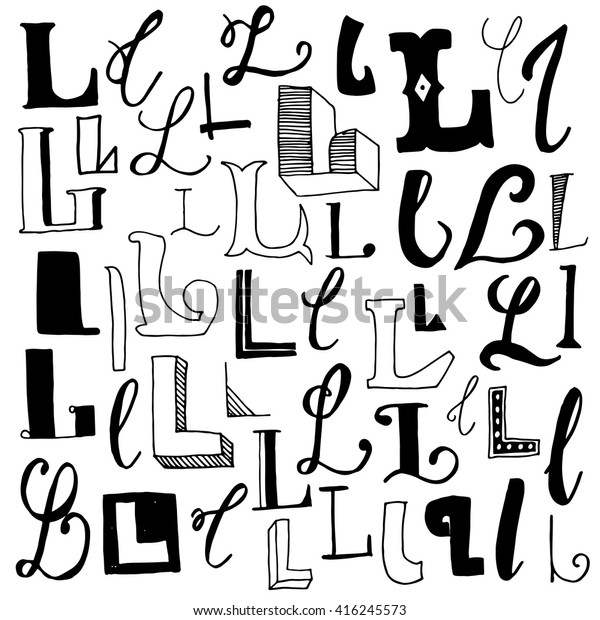 L l L l L l l
L L L L L
L L L l L L
L l L L l L L L l
shutterstock
L l L L l L
L L L l
L L l L L L l l l
shutterstock.com · 416245573